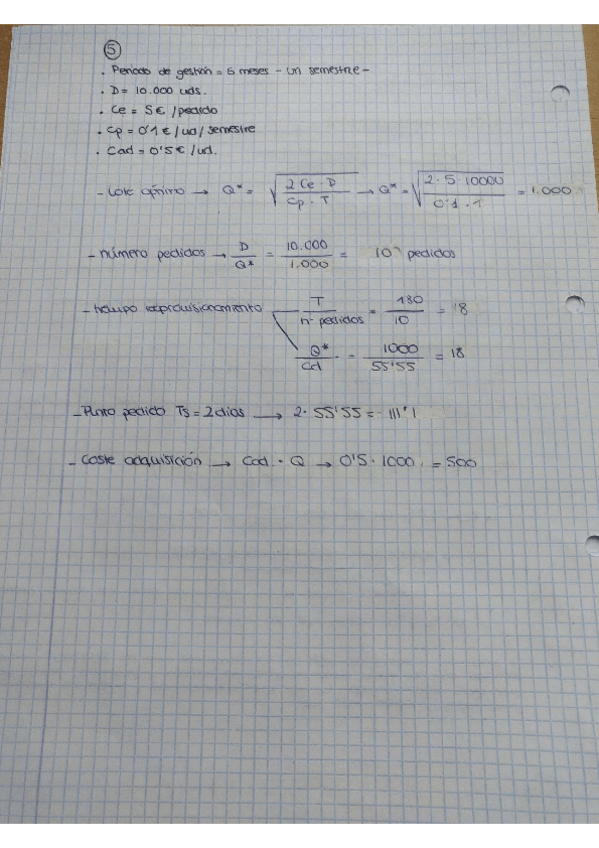 5
. Periodo de gestión = 6 meses - un semestre -
. D = 10.000 uds.
. Ce = 5 € /pedido
. Cp = 0'1 € / ud / semestre
. Cad = 0'5 € / ud.
- Lote óptimo → Q* = √ 2 Ce · D / Cp · T → Q* = √ 2 · 5 · 10000 / 0'1 · 1 = 1.000
- número pedidos → D / Q* = 10.000 / 1.000 = 10 pedidos
- tiempo reaprovisionamiento T / nº pedidos = 180 / 10 = 18
Q* / Cd = 1000 / 55'55 = 18
- Punto pedido Ts = 2 dias → 2 · 55'55 = 111'1
- Coste adquisición → Cad · Q → 0'5 · 1000 = 500